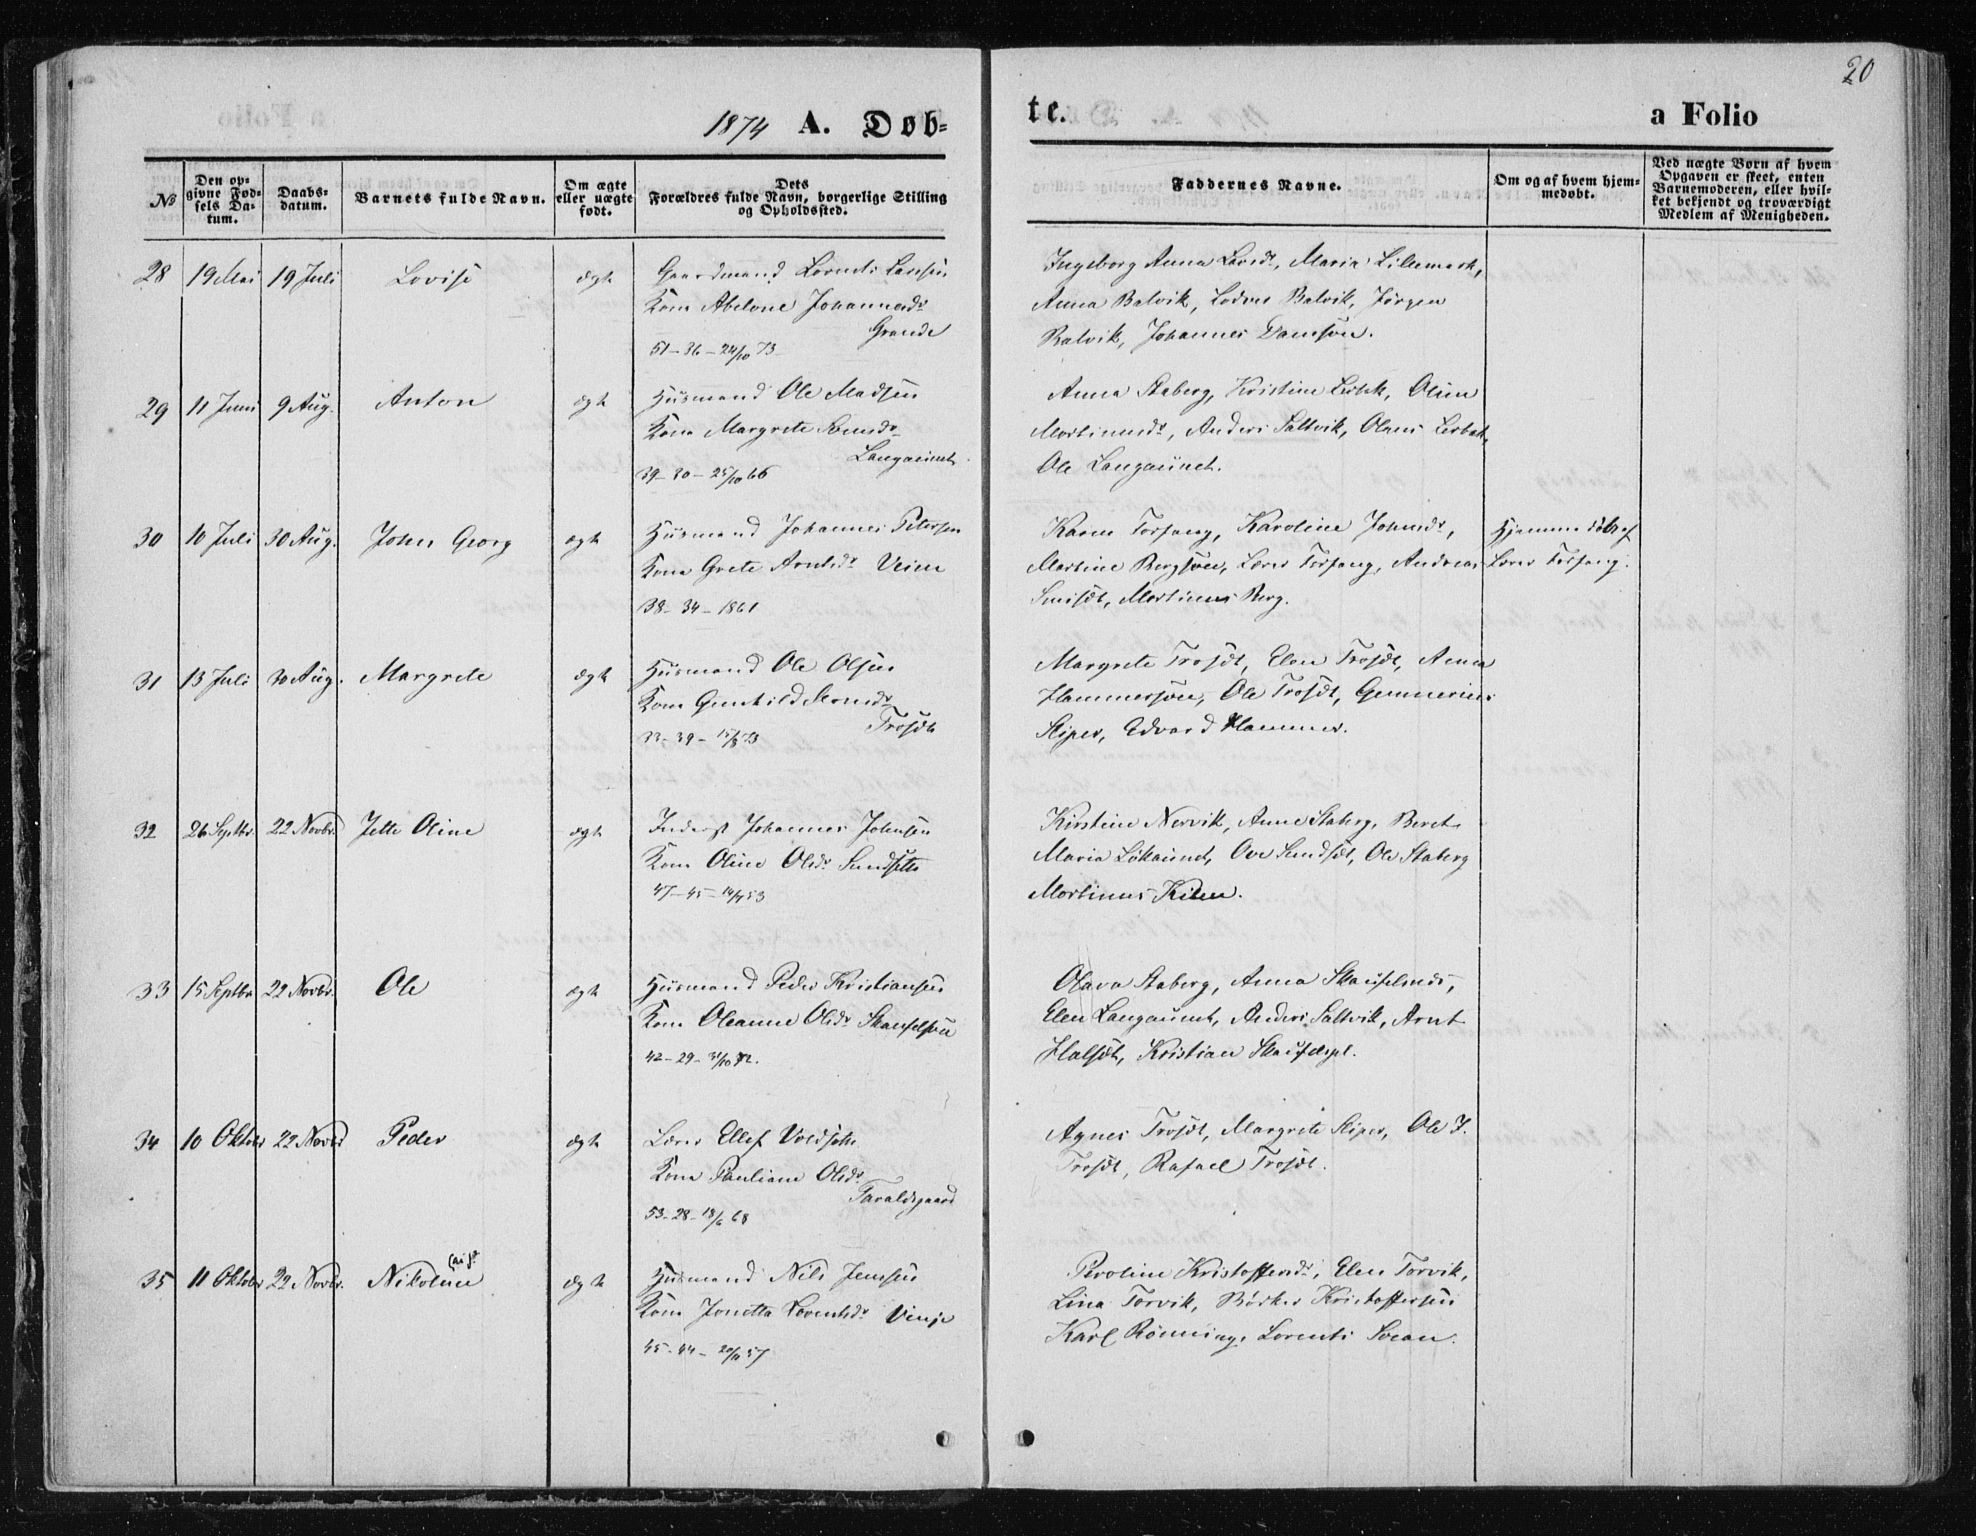 20
1874 A. Døb-
te.
a Folio
№
Den op-
givne Fød-
sels Da-
tum.
Daabs-
datum.
Barnets fulde Navn.
Om ægte
eller uægte
født.
Dets
Forældres fulde Navn, borgerlige Stilling
og Opholdssted.
Faddernes Navne.
Om og af hvem hjem-
medøbt.
Ved uægte Børn af hvem
Opgaven er skeet, enten
Barnemoderen, eller hvil-
ket bekjendt og troværdigt
Medlem af Menigheden.
28 19 Mai 19 Juli Lovise ægte Gaardmand Lorents Larsen
Kone Abelone Johannesdr
Grande
51-36-24/10 73
Ingeborg Anna Larsdr, Maria Lillemark,
Anna Ralvik, Lodves Ralvik, Jørgen
Ralvik, Johannes Damsøn.
29 11 Juni 9 Aug. Anton ægte Husmand Ole Madsen
Kone Margrete
Langaunet
39-30-25/10 66
Anna Staberg, Kristine Lerbek, Oline
Mortinusdr, Anders Saltvik, Olaus Lerbek,
Ole Langaunet.
30 10 Juli 30 Aug. Johan Georg ægte Husmand Johannes Petersen
Kone Grete Arntsdr Veien
38-34-1861
Karen Forfang, Karoline Johnsdr,
Martine Bergsøn, Lærer Forfang, Andreas
Smisdt, Mortinus Berg.
Hjemmedøbt af
Lærer Forfang.
31 13 Juli 30 Aug. Margrete ægte Husmand Ole Olsen
Kone Gunhild
Trosdt
33-39-15/8 73
Margrete Trosdt, Elen Trosdt, Anna
Hammersøen, Ole Trosdt, Gunnerius
Sliper, Edvard Hammer.
32 26 Septbr. 22 Novbr. Jette Oline ægte Inderst Johannes Johnsen
Kone Oline Olsdr Sundsette
47-45-14/4 53
Kirstine Nervik, Anne Staberg, Beret
Maria Løkaunet, Ove Sundset, Ole Staberg
Mortinus Kilen.
33 15 Septbr 22 Novbr. Ole ægte Husmand Peder Kristiansen
Kone Oleanne Olsdr
42-29-31/10 72.
Olava Staberg, Anna
Elen Langaunet, Anders Saltvik, Arnt
Halset, Kristian
34 10 Oktober 22 Novbr Peder ægte Lærer Ellef
Kone Pauliane Olsdr
Taraldsgaard
53-28-18/6 68
Agnes Trosdt, Margrete Sliper, Ole J.
Trosdt, Rafael Trosdt.
35 11 Oktober 22 Novbr. Nikoline ægte Husmand Nils Jensen
Kone Jonetta Lorentsdr Vinje
45-44-20/11 57
Peroline Kristoffersdr, Elen Torvik,
Lina Torvik, Børker Kristoffersen
Karl Rønning, Lorents Svean.